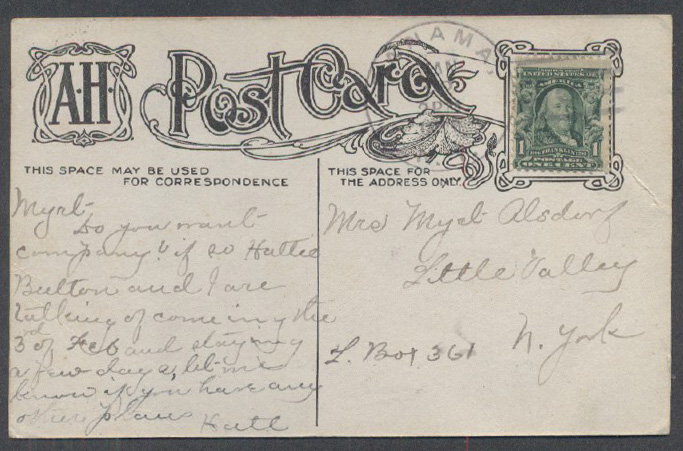 A.H.
Post Card
PANAMA
JAN
THIS SPACE MAY BE USED
FOR CORRESPONDENCE
THIS SPACE FOR
THE ADDRESS ONLY.
UNITED STATES OF
1 1
POSTAGE
ONE CENT
Myrt-
Do you want
company? if so Hattie
Button and I are
talking of coming the
3rd of Feb and staying
a few days, let me
know if you have any
other plans
Mrs Myrt Alsdorf
Little Valley
N. York
L. Box 361